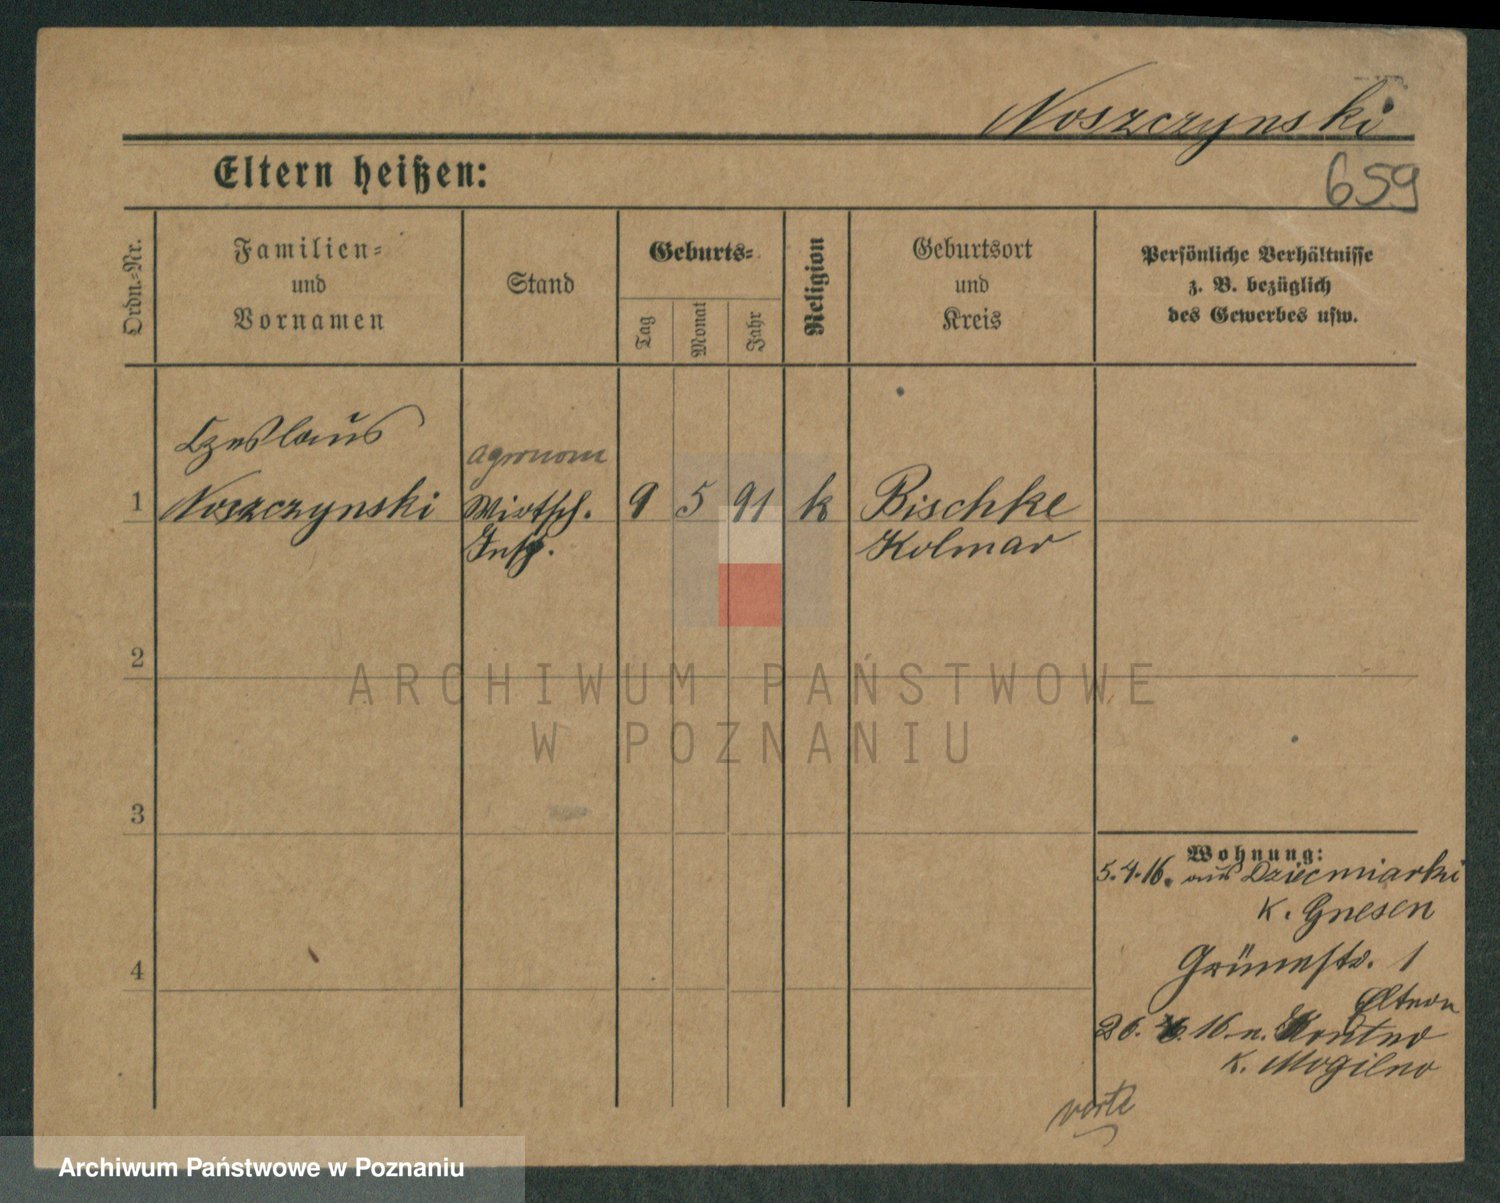 Noszczynski
Eltern heißen:
659
Ordn.=Nr.
Familien=
und
Vornamen
Stand
Geburts=
Tag
Monat
Jahr
Religion
Geburtsort
und
Kreis
Persönliche Verhältnisse
z. B. bezüglich
des Gewerbes usw.
Czeslaus
agronom
1 Noszczynski Wirtsch. 9 5 91 k Bischke
Insp. Kolmar
2
ARCHIWUM PAŃSTWOWE
W POZNANIU
3
Wohnung:
5.4.16. aus Dziecmiarki
K. Gnesen
4
Grünestr. 1
Eltern
26. 16 n.
K. Mogilno
verte
Archiwum Państwowe w Poznaniu